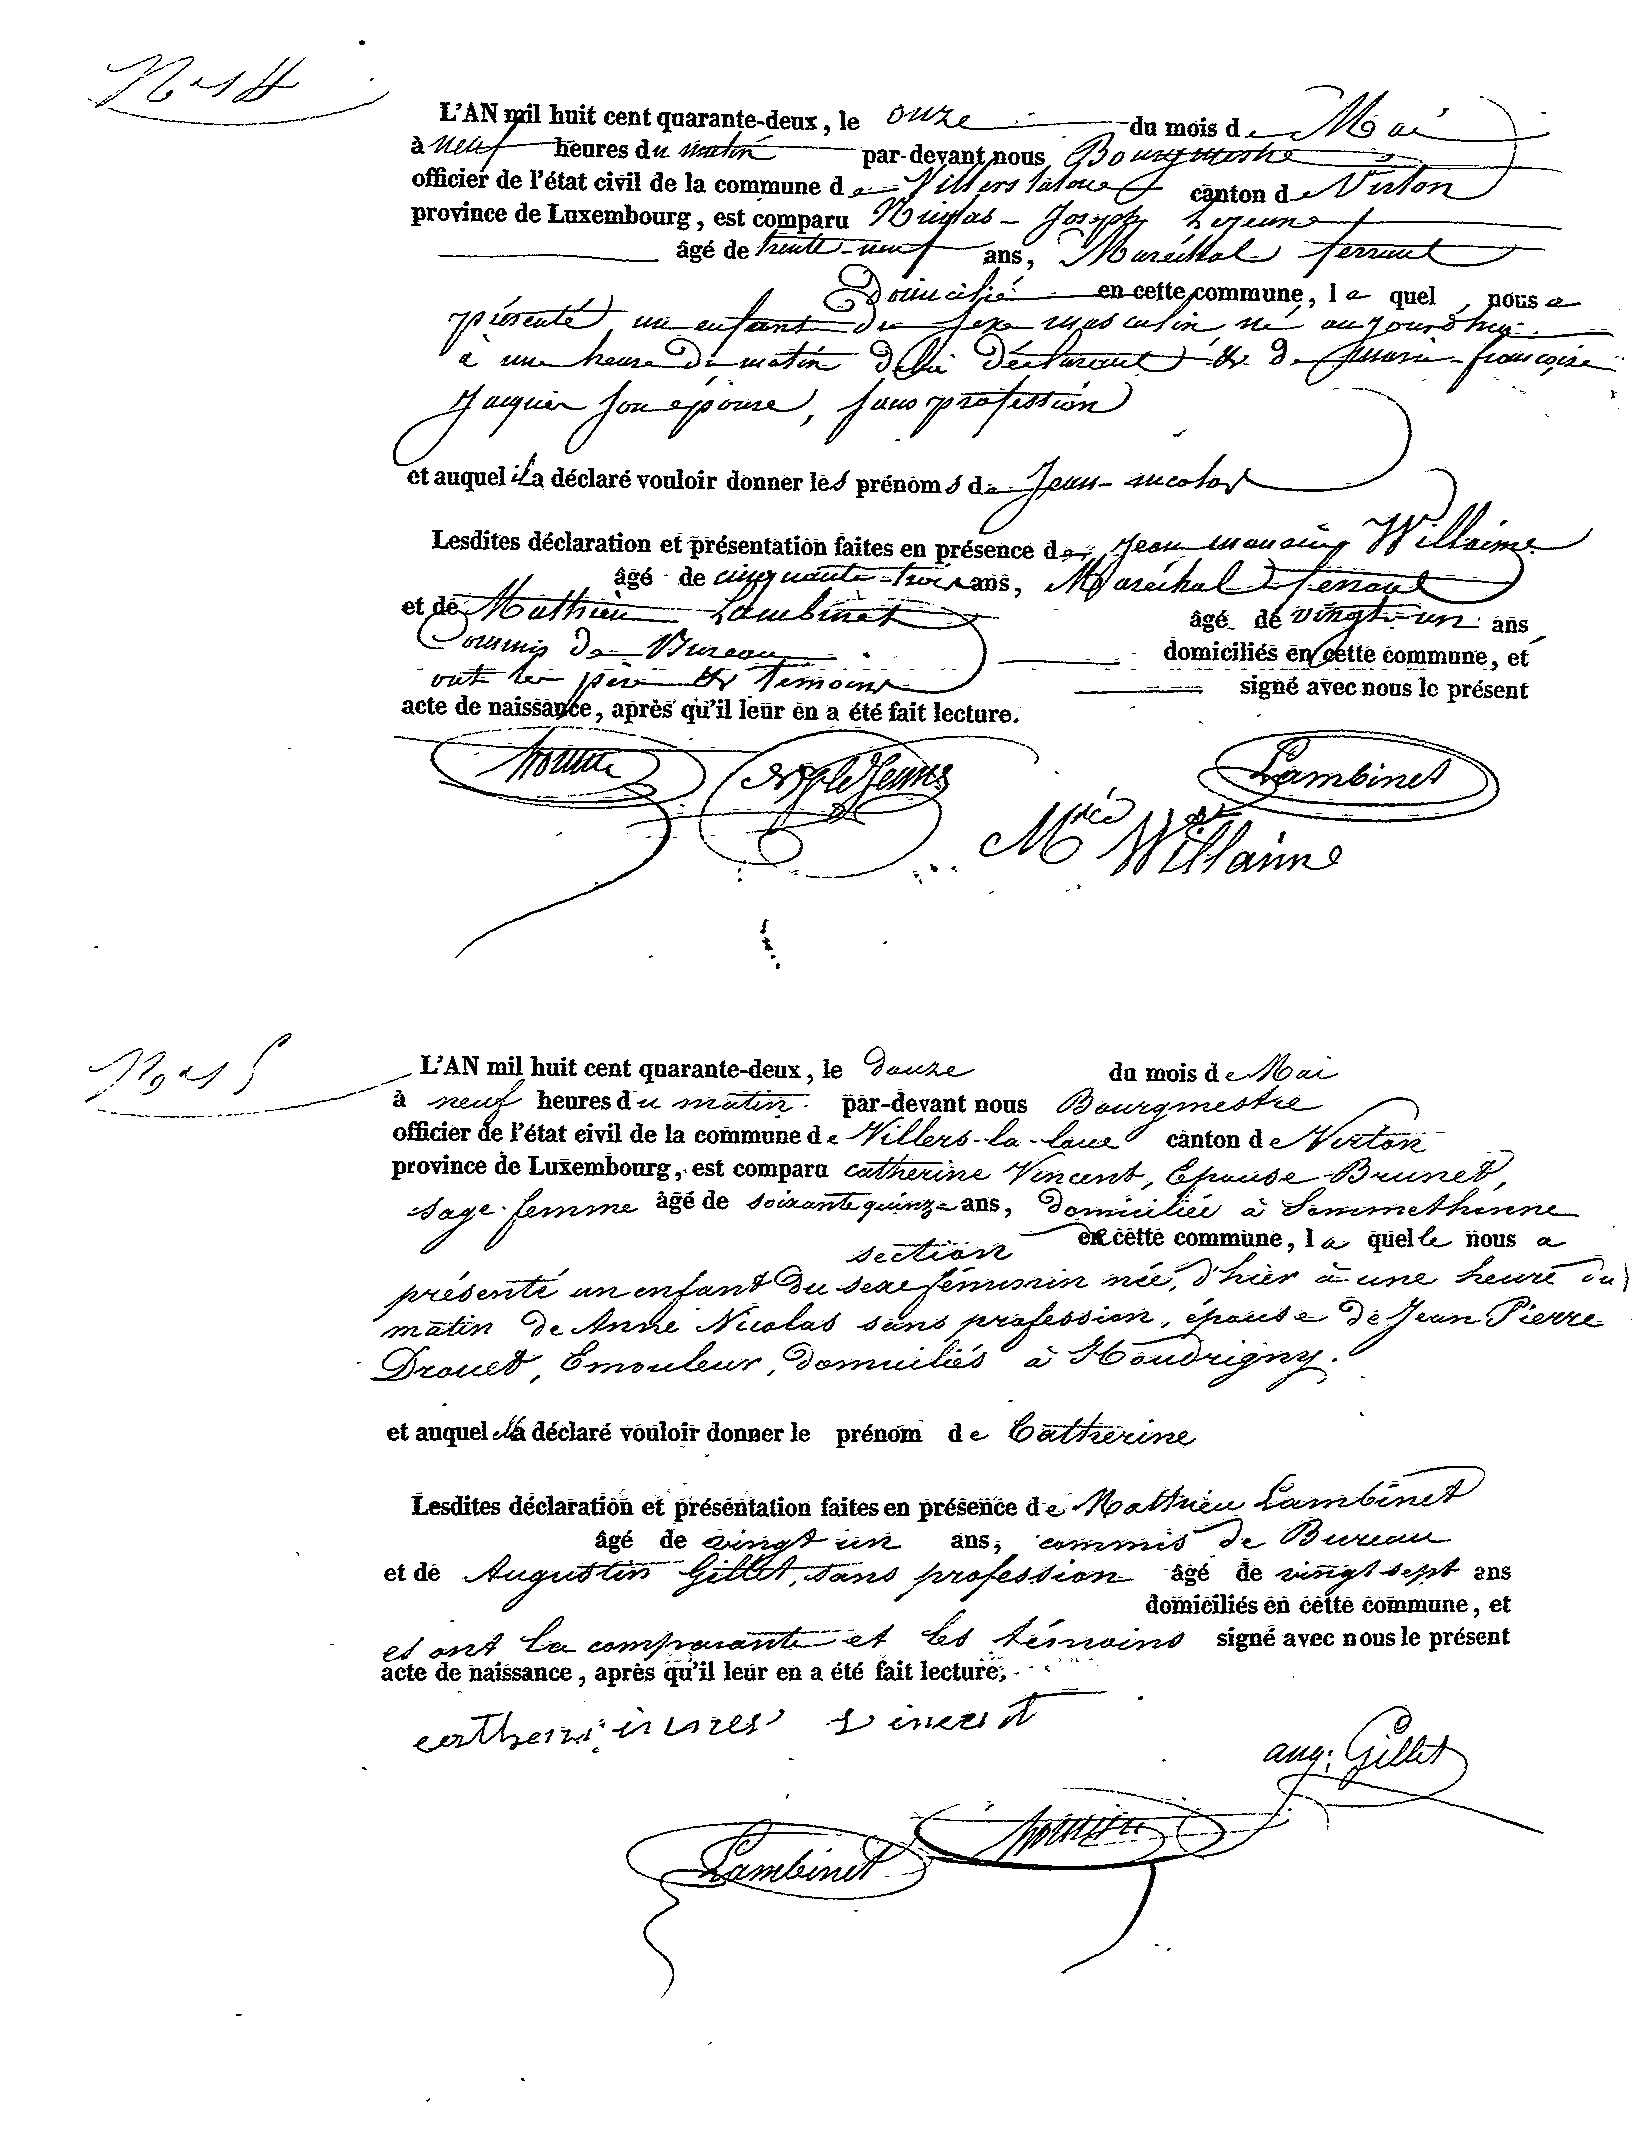 N° 14
L'AN mil huit cent quarante-deux, le onze du mois de Mai
à neuf heures du matin par-devant nous Bourgmestre
officier de l'état civil de la commune de Villers laloue canton de Virton
province de Luxembourg, est comparu Nicolas-Joseph Lejeune
âgé de trente-neuf ans, Maréchal ferrant
Domicilié en cette commune, le quel nous a
présenté un enfant du sexe masculin né aujourd'hui
à une heure du matin de lui déclarant et de Marie-françoise
Jacquier son épouse, sans profession
et auquel il a déclaré vouloir donner les prénoms de Jean-nicolas
Lesdites déclaration et présentation faites en présence de Jean Willaime
âgé de cinquante-trois ans, Maréchal ferrant
et de Mathieu Lambinet âgé de vingt-un ans
Commis de Bureau domiciliés en cette commune, et
ont les père et témoins signé avec nous le présent
acte de naissance, après qu'il leur en a été fait lecture.
Lejeune Lambinet
Willaime
N° 15
L'AN mil huit cent quarante-deux, le douze du mois de Mai
à neuf heures du matin par-devant nous Bourgmestre
officier de l'état civil de la commune de Villers-la-loue canton de Virton
province de Luxembourg, est comparu catherine Vincent, Epouse Brunet,
sage-femme âgé de soixante quinze ans, domiciliée à Sommethonne
section en cette commune, la quelle nous a
présenté un enfant du sexe féminin née, d'hier à une heure du
matin de Anne Nicolas sans profession, épouse de Jean Pierre
Drouet, Emouleur, domiciliés à Houdrigny.
et auquel il a déclaré vouloir donner le prénom de Catherine
Lesdites déclaration et présentation faites en présence de Mathieu Lambinet
âgé de vingt un ans, commis de Bureau
et de Augustin Gillet, sans profession âgé de vingt sept ans
domiciliés en cette commune, et
et ont la comparante et les témoins signé avec nous le présent
acte de naissance, après qu'il leur en a été fait lecture.
aug: Gillet
Lambinet